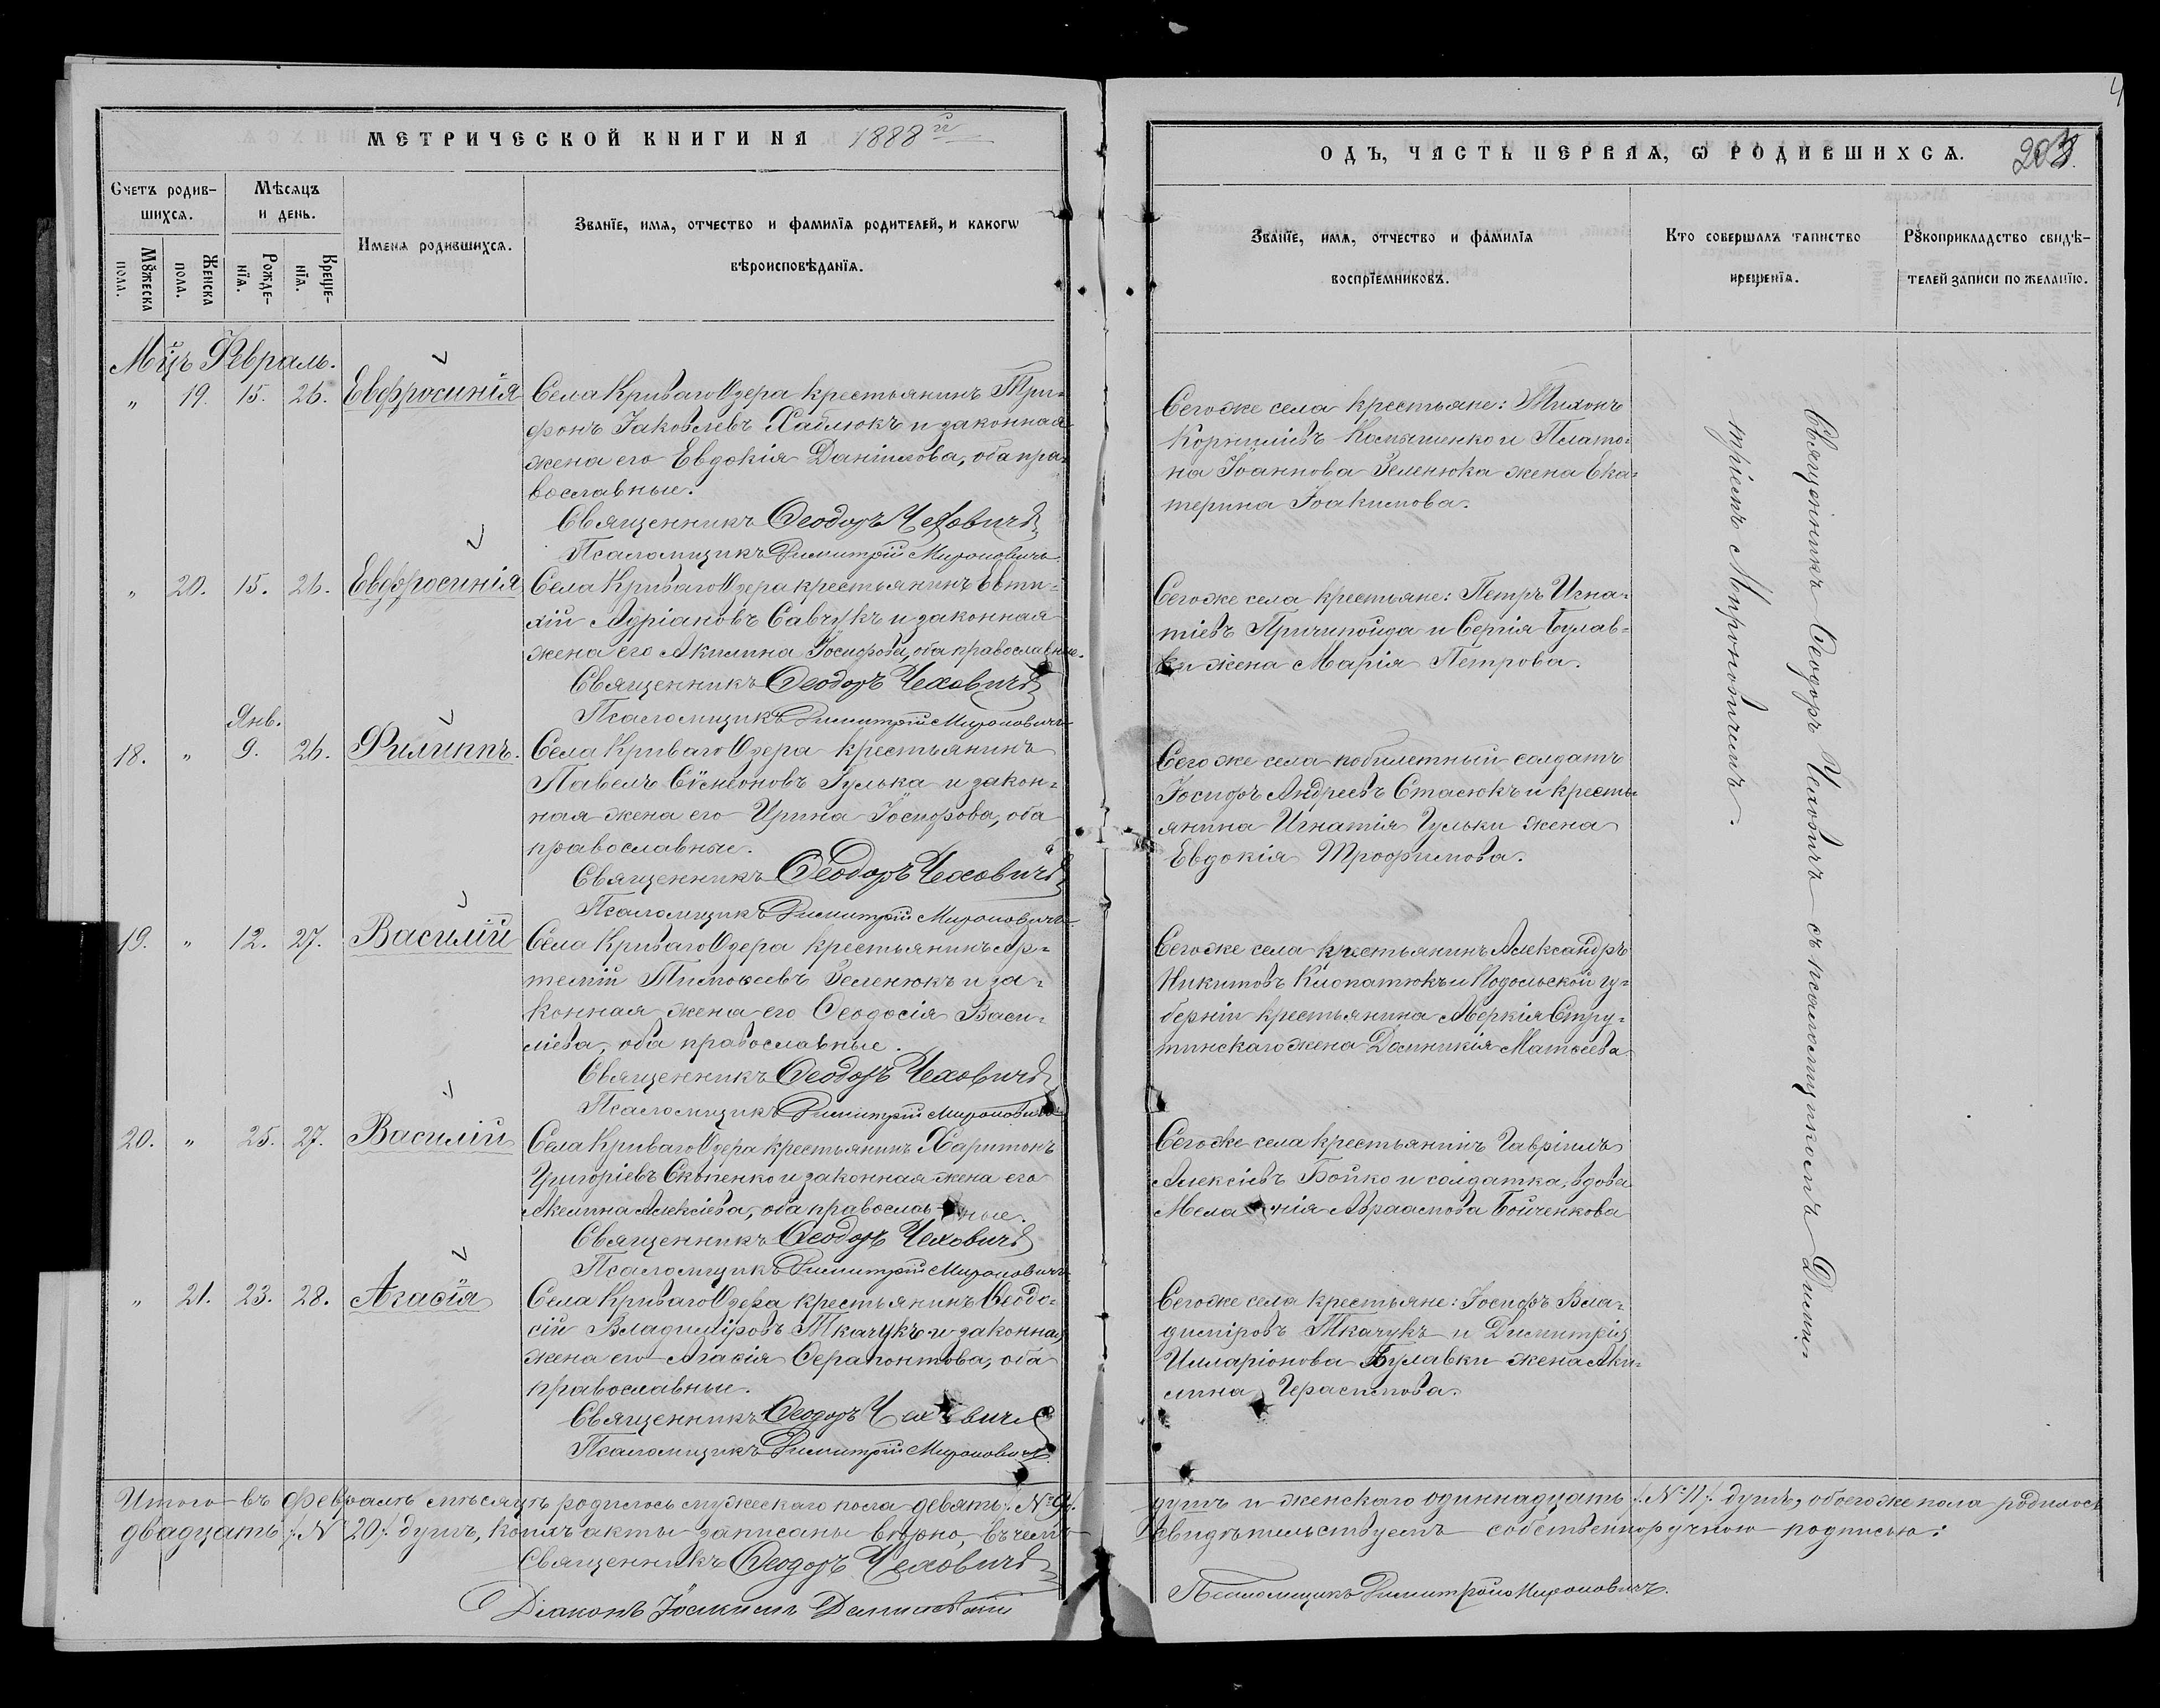 МЕТРИЧЕСКОЙ КНИГИ НА 1888й
Счетъ родив-
шихся.
Мѣсяцъ
и день.
Имена родившихся.
Званїе, имя, отчество и фамилїя родителей, и какогѡ
вѣроисповѣданїя.
Мꙋжеска
пола.
Женска
пола.
Рожде-
нїя.
Креще-
нїя.
Мцъ Февраль.
" 19. 15. 26. Евфросинія Села Криваго Озера крестьянинъ Три-
фонъ Іаковлевъ Хаблюкъ и законная
жена его Евдокія Даніилова, оба пра-
вославные.
Священникъ Ѳеодоръ Чеховичъ
Псаломщикъ Димитрій Мироновичъ
" 20. 15. 26. Евфросинія Села Криваго Озера крестьянинъ Евти-
хій Адріановъ Савчукъ и законная
жена его Акилина Іосифова, оба православные.
Священникъ Ѳеодоръ Чеховичъ
Псаломщикъ Димитрій Мироновичъ
Янв.
18. " 9. 26. Филиппъ. Села Криваго Озера крестьянинъ
Павелъ Сѵмеоновъ Гулька и закон-
ная жена его Ирина Іосифова, оба
православные.
Священникъ Ѳеодоръ Чеховичъ
Псаломщикъ Димитрій Мироновичъ
19. " 12. 27. Василій Села Криваго Озера крестьянинъ Ар-
темій Тимоѳеевъ Зеленюкъ и за-
конная жена его Ѳеодосія Васи-
ліева, оба православные.
Священникъ Ѳеодоръ Чеховичъ
Псаломщикъ Димитрій Мироновичъ
20. " 25. 27. Василій Села Криваго Озера крестьянинъ Харитонъ
Григоріевъ Скопенко и законная жена его
Акилина Алексіева, оба православные.
Священникъ Ѳеодоръ Чеховичъ
Псаломщикъ Димитрій Мироновичъ
" 21. 23. 28. Агаѳія Села Криваго Озера крестьянинъ Ѳеодо-
сій Владиміровъ Ткачукъ и законная
жена его Агаѳія Серапонтова, оба
православные.
Священникъ Ѳеодоръ Чеховичъ
Псаломщикъ Димитрій Мироновичъ
Итого въ Февралѣ мѣсяцѣ родилось мужескаго пола девять /.№ 9/.
двадцать /.№ 20/. душъ, коихъ акты записаны вѣрно, въ чемъ
Священникъ Ѳеодоръ Чеховичъ
Діаконъ Іоакимъ
ОДЪ, ЧАСТЬ ПЕРВАЯ, Ѡ РОДИВШИХСЯ. 203.
4
Званїе, имя, отчество и фамилїя
воспрїемниковъ.
Кто совершалъ таинство
крещенїя.
Рꙋкоприкладство свидѣ-
телей записи по желанїю.
Сегоже села крестьяне: Тихонъ
Корниліевъ и Плато-
на Іоаннова Зеленюка жена Ека-
терина Іоакимова.
Сегоже села крестьяне: Петръ Игна-
тіевъ Причипойда и Сергія Булав-
ки жена Марія Петрова.
Сегоже села побилетный солдатъ
Іосифъ Андреевъ Стасюкъ и кресть-
янина Игнатія Гульки жена
Евдокія Трофимова.
Сегоже села крестьянинъ Александръ
Никитовъ и Подольской гу-
берніи крестьянина Меркія Стру-
тинскаго жена Домникія Матѳеева
Сегоже села крестьянинъ Гавріилъ
Алексіевъ Бойко и солдатка, вдова
Меланія Авраамова Бойченкова
Сегоже села крестьяне: Іосифъ Вла-
диміровъ Ткачукъ и Димитрія
Илларіонова Булавки жена Аки-
лина Герасимова.
Священникъ Ѳеодоръ Чеховичъ съ псаломщикомъ Дими-
тріемъ Мироновичемъ.
душъ и женскаго одиннадцать /.№ 11/. душъ, обоегоже пола родилось
свидѣтельствуемъ собственноручною подписью:
Псаломщикъ Димитрій Мироновичъ.